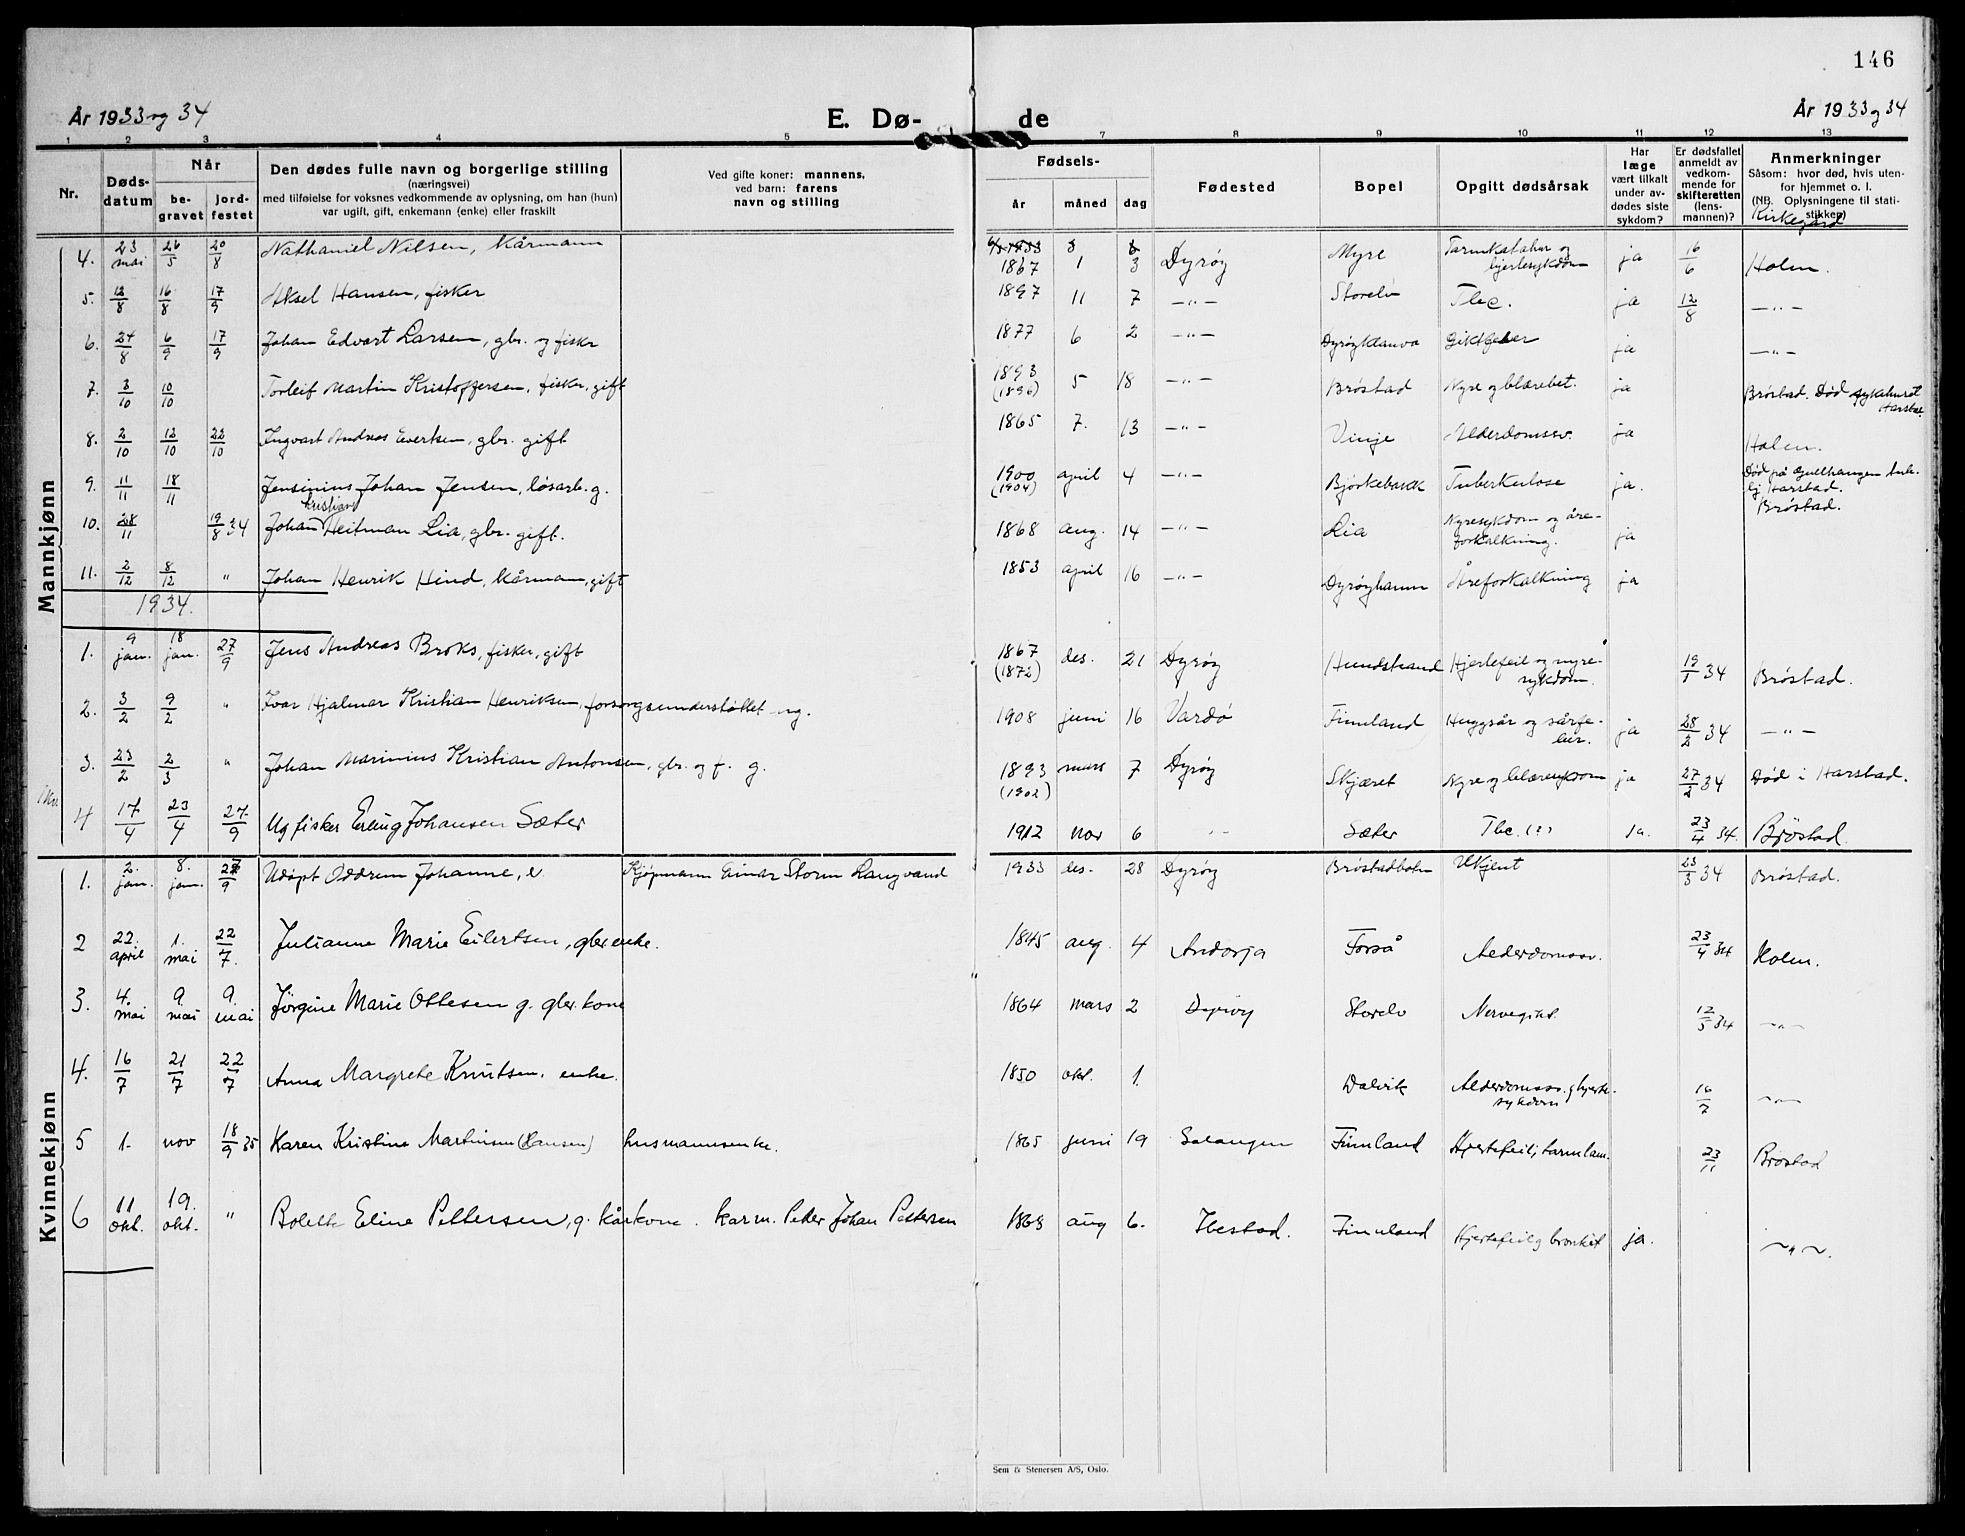 146
År 1933 og 34
E. Dø-
de
År 1933 og 34
1 2 3 4 5 7 8 9 10 11 12 13
Nr.
Døds-
datum
Når
be-
gravet
jord-
festet
Den dødes fulle navn og borgerlige stilling
(næringsvei)
med tilføielse for voksnes vedkommende av oplysning, om han (hun)
var ugift, gift, enkemann (enke) eller fraskilt
Ved gifte koner: mannens,
ved barn: farens
navn og stilling
Fødsels-
år måned dag
Fødested
Bopel
Opgitt dødsårsak
Har
læge
vært tilkalt
under av-
dødes siste
sykdom?
Er dødsfallet
anmeldt av
vedkom-
mende for
skifteretten
(lens-
mannen)?
Anmerkninger
Såsom: hvor død, hvis uten-
for hjemmet o. l.
(NB. Oplysningene til stati-
stikken)
Kirkegård
Mannkjønn
4. 23 mai 26/5 20/8 Nathaniel Nilsen, kårmann 1867 1 3 Dyrøy Myre Tarmkatahr og hjertesykdom ja 6/6 Holm.
5. 12/8 16/8 17/9 Aksel Hansen, fisker 1897 11 7 —„— Storelv Tbc. ja 12/8 —„—
6. 24/8 6/9 17/9 Johan Edvart Larsen, gbr. og fisker 1877 6 2 —„— Dyrøyklauva Giktfeber ja —„—
7. 3/10 10/10 Torleif Martin Kristoffersen, fisker, gift 1893 (1896) 5 18 —„— Brøstad Nyre og blærebet. ja Brøstad. Død sykehuset Harstad
8. 2/10 12/10 22/10 Ingvart Andreas Evertsen, gbr. gift 1865 7. 13 —„— Vinje Alderdomssv. ja Holm.
9. 11/11 18/11 Jensinius Johan Jensen, løsarb. g. 1900 (1904) april 4 —„— Bjørkebakk Tuberkulose ja. Død på Gullhaugen Harstad. Brøstad.
10. 28/11 19/8 34 Johan Kristian Heitman Lia, gbr. gift. 1868 aug. 14 —„— Lia Nyresykdom og åre-forkalkning. ja
11. 2/12 8/12 „ Johan Henrik Hind, kårmann, gift 1853 april 16 —„— Dyrøyhamn Åreforkalkning ja
1934.
1. 9 jan. 18 jan. 27/9 Jens Andreas Broks, fisker, gift 1867 (1872) des. 21 Dyrøy Hundstrand Hjertefeil og nyre-sykdom. 19/1 34 Brøstad.
2. 3/2 9/2 „ Ivar Hjalmar Kristian Henriksen, forsorgsunderstøttet ug. 1908 juni 16 Vardø Finnland Huggsår og sårfe-ber. ja 28/2 34 —„—
3. 23/2 2/3 „ Johan Marinius Kristian Antonsen, gbr. og f. g. 1893 (1902) mars 7 Dyrøy Skjæret Nyre og blæresykdom ja 27/2 34 Død i Harstad.
4 17/4 23/4 27/9 Ug fisker Erling Johansen Sæter 1912 nov 6 „ Sæter Tbc. (?) ja. 23/4 34 Brøstad
Kvinnekjønn
1. 2. jan. 8. jan. 27/9 Udøpt Oddrun Johanne, e. Kjøpmann Einar Storm Langvand 1933 des. 28 Dyrøy Brøstadbotn Ukjent 23/3 34 Brøstad.
2 22. april 1. mai 22/7. Julianne Marie Eilertsen, gbr enke. 1845 aug. 4 Andørja Forså Alderdomssv. 23/4 34 Holm.
3. 4. mai 9. mai 9. mai Jørgine Marie Ottesen g. gbr. kone 1864 mars 2 Dyrøy Storelv 12/5 34 —„—
4. 16/7 21/7 22/7 Anna Margrete Knutsen, enke. 1850 okt. 1. Dalvik Alderdomssv. g hjerte-sykdom 16/7 —„—
5 1. nov 18/9 35 Karen Kristine Martinsen (Hansen) husmannsenke. 1865 juni 19 Salangen Finnland Hjertefeil; tarmlam. 23/11 Brøstad
6 11 okt. 19. okt. „ Bolette Eline Pettersen, g. kårkone. kårm. Peder Johan Pettersen 1868 aug 6. Ibestad. Finnland Hjertefeil g bronkit ja. —„—.
Sem & Stenersen A/S, Oslo.